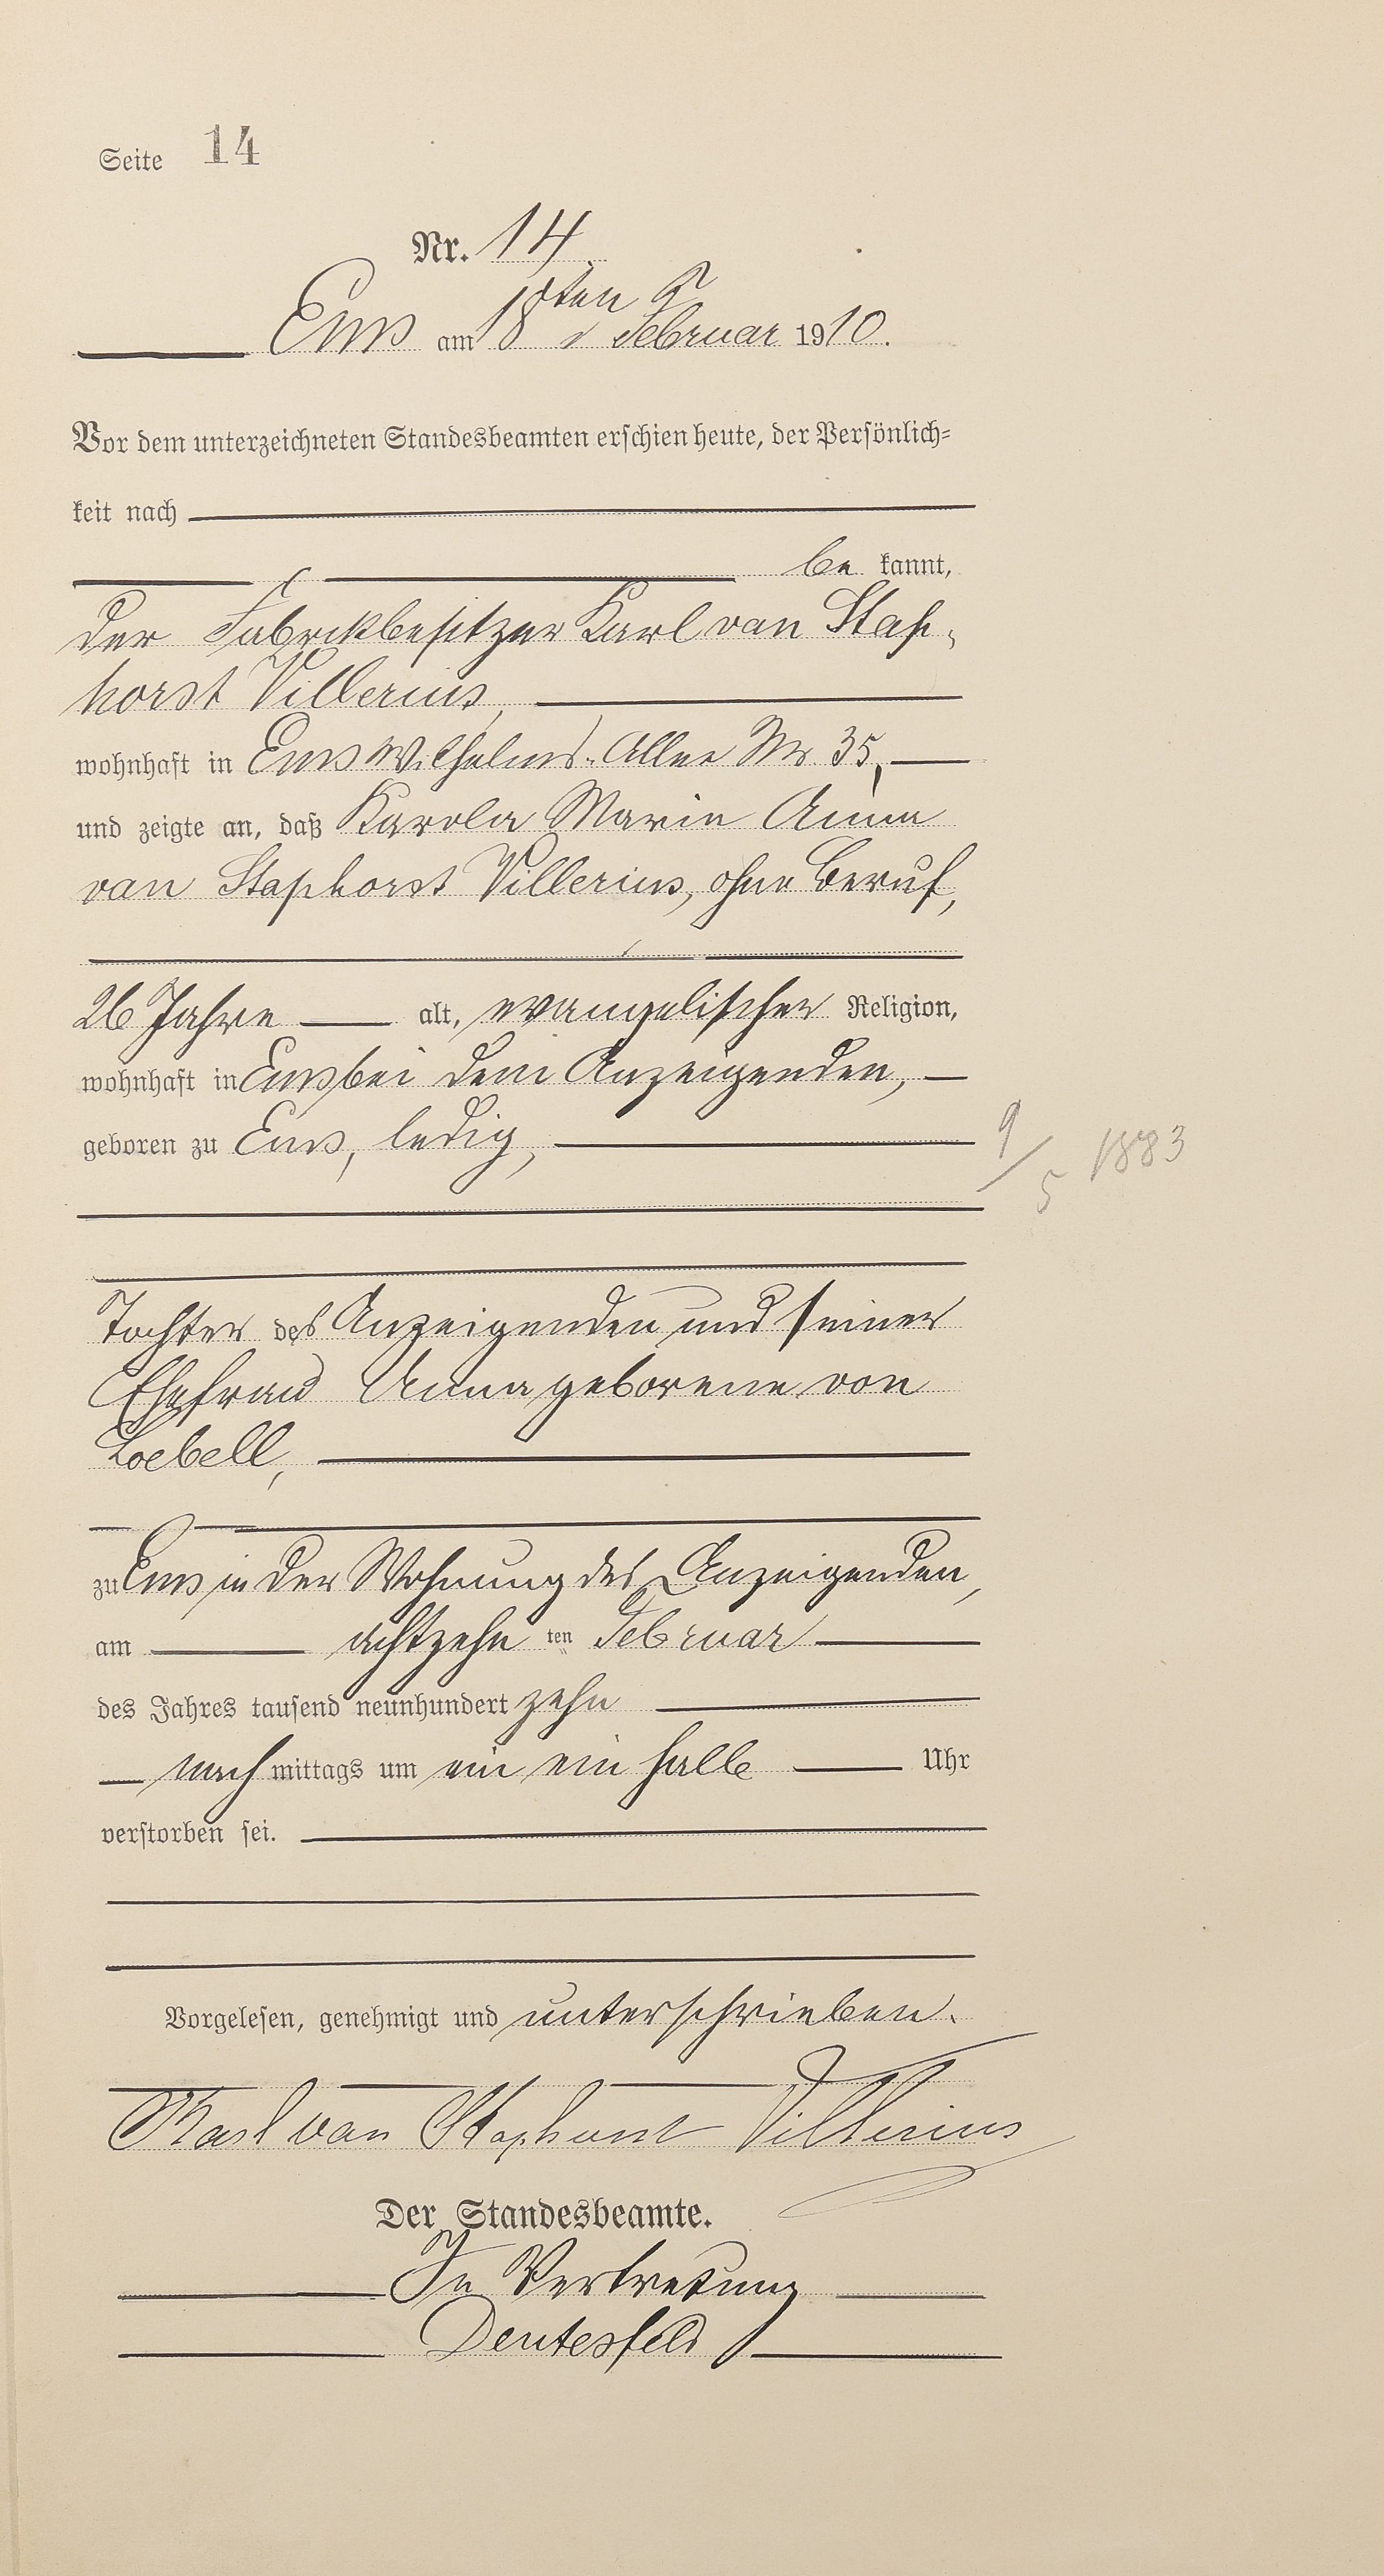 Seite 14
Nr. 14
Ems am 18ten Februar 1910.
Vor dem unterzeichneten Standesbeamten erschien heute, der Persönlich-
keit nach
be kannt,
der Fabrikbesitzer Karl van Stap-
horst Villerius,
wohnhaft in Ems Wilhelms-Allee No 35,
und zeigte an, daß Karola Maria Anna
van Staphorst Villerius, ohne Beruf,
26 Jahre alt, evangelischer Religion,
wohnhaft in Ems bei dem Anzeigenden,
geboren zu Ems, ledig,
9/5 1883
Tochter des Anzeigenden und seiner
Ehefrau Anna geborene von
Loebell,
zu Ems in der Wohnung des Anzeigenden,
am achtzehn ten Februar
des Jahres tausend neunhundert zehn
nach mittags um ein ein halb Uhr
verstorben sei.
Vorgelesen, genehmigt und unterschrieben.
Karl van Staphorst Villerius
Der Standesbeamte.
In Vertretung
Deutesfeld